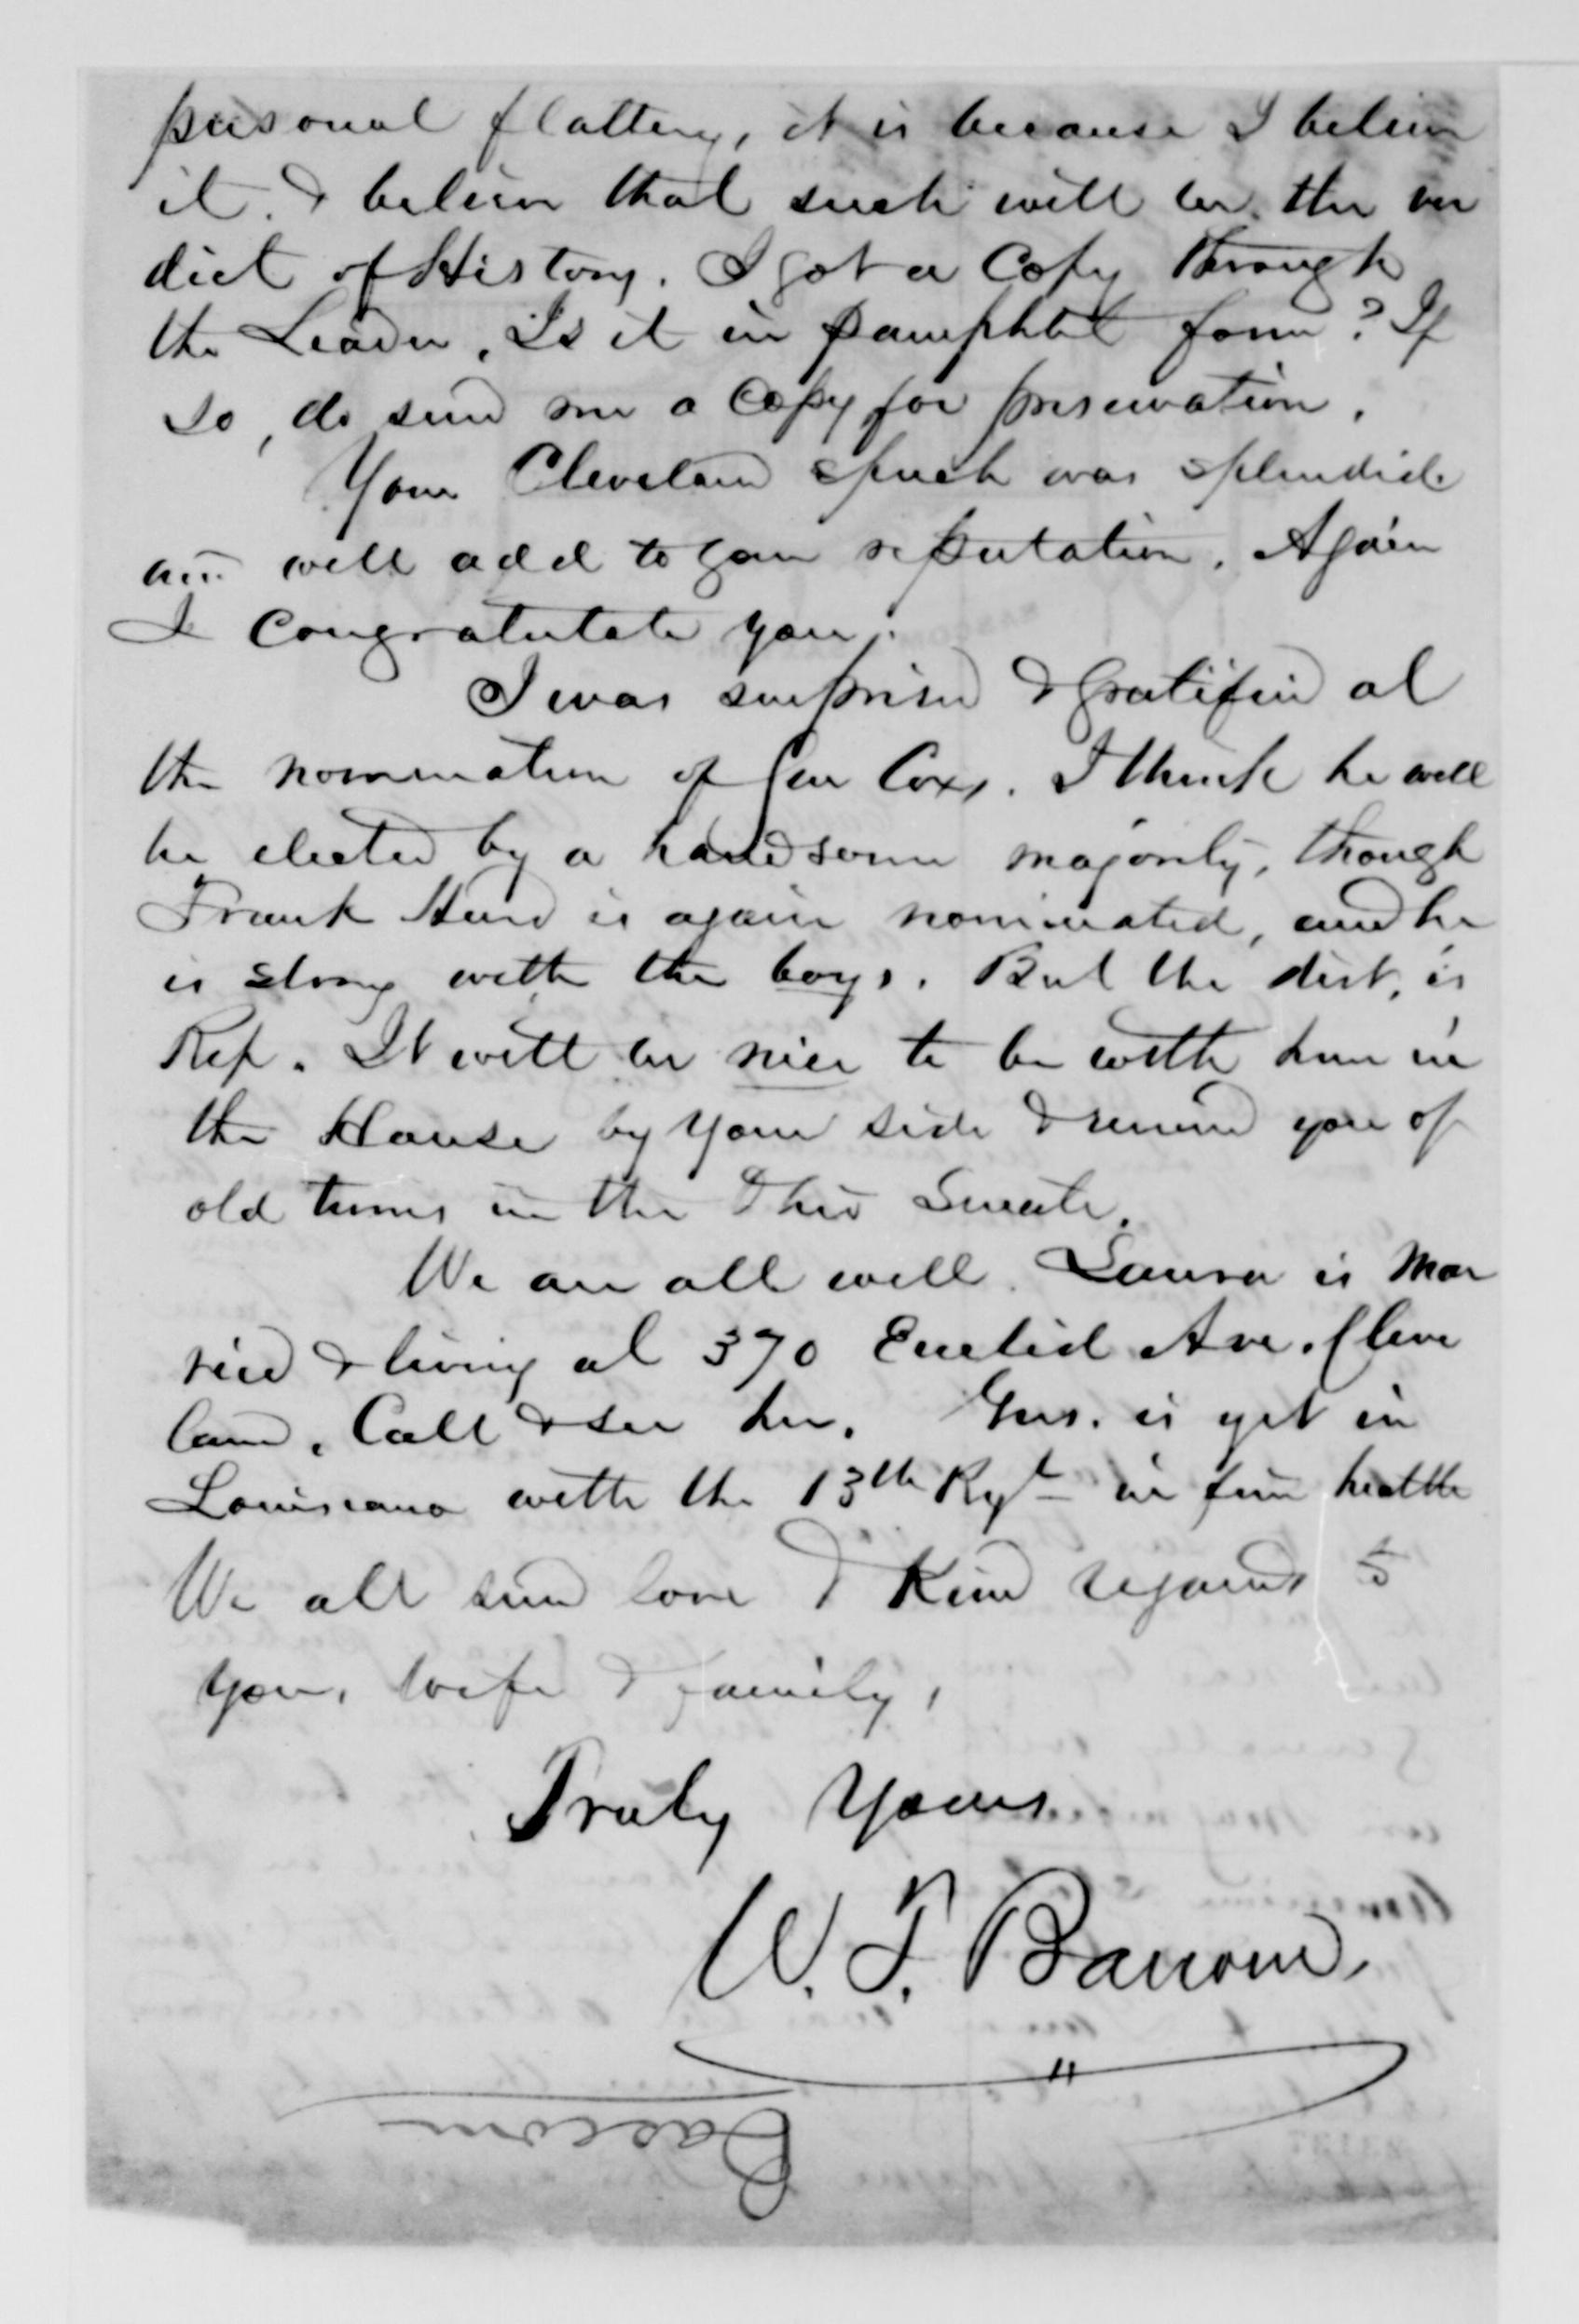 personal flattery, it is because I believe
it. & believe that such will be the ver
dict of History. I got a Copy through
the Leader. Is it in pamphlet form? If
so, do send me a Copy for preservation.
Your Cleveland speech was splendid
and will add to your reputation. Again
I congratulate you.
I was surprised & gratified at
the nomination of Gen Cox. I think he will
be elected by a handsome majority, though
Frank Hurd is again nominated, and he
is strong with the boys. But the dist. is
Rep. It will be nice to be with him in
the House by your side & remind you of
old times in the Ohio Senate.
We are all well. Laura is Mar
ried & living at 370 Euclid Ave. Cleve
land. Call & see her. Gus. is yet in
Louisiana with the 13th Regt in fine health
We all send love & Kind regards to
you, wife & family,
Truly Yours
W. T. Bascom.
Bascom